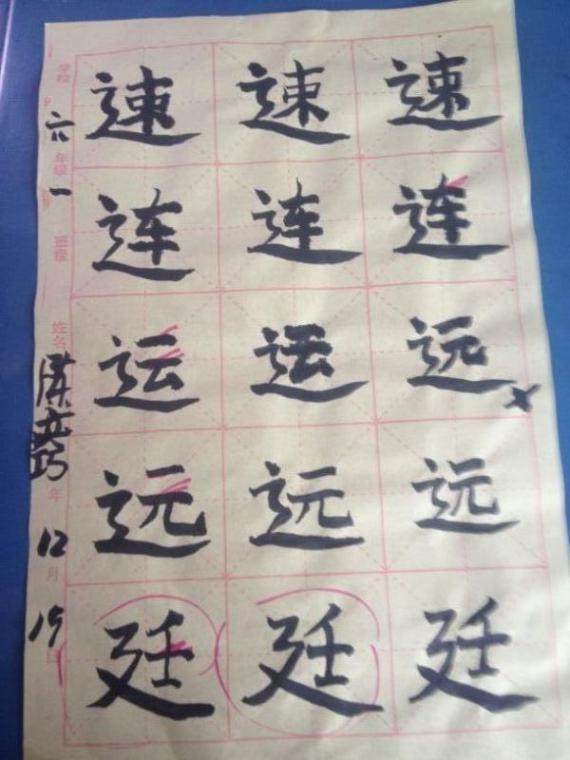 速 速 速
连 连 连
运 运 远
远 远 远
廷 廷 廷
学校
六 年级
一 班级
姓名
年 12 月 19 日